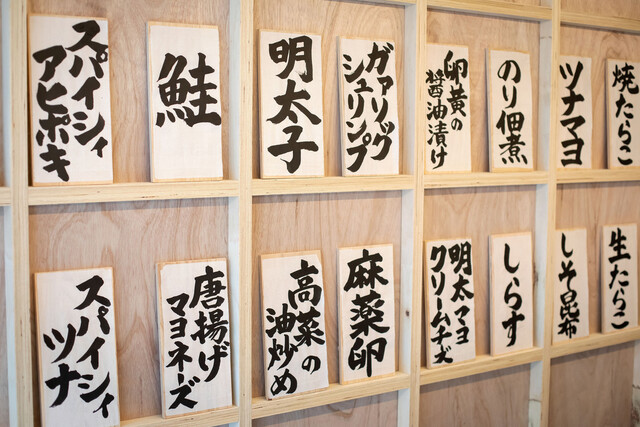 スパイシィ
アヒポキ
鮭
明太子
ガァリック
シュリンプ
卵黄の
醤油漬け
のり佃煮
ツナマヨ
焼たらこ
スパイシィ
ツナ
唐揚げ
マヨネーズ
高菜の
油炒め
麻薬卵
明太マヨ
クリームチーズ
しらす
しそ昆布
生たらこ